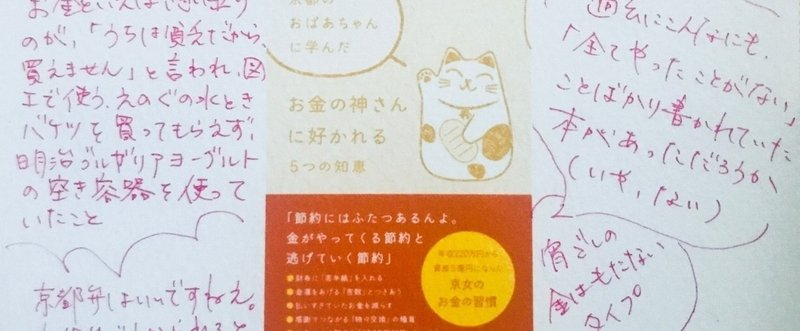 お金といえば
のが、「うちは貧乏だから、
買えません」と言われ、図
工で使う、えのぐの水とき
バケツを買ってもらえず、
明治ブルガリアヨーグルト
の空き容器を使って
いたこと
京都弁はいいですねえ。
京都の
おばあちゃん
に学んだ
お金の神さん
に好かれる
5つの知恵
「節約にはふたつあるんよ。
金がやってくる節約と
逃げていく節約」
財布に
を入れる
金運をあげる「吉数」とつきあう
払いすぎていたお金を減らす
感謝でつながる「物々交換」の極意
年収220万円から
資産5億円になった
京女の
お金の習慣
過去にこんなにも、
「全てやったことがない」
ことばかり書かれていた
本があっただろうか
(いや、ない)
宵ごしの
金はもたない
タイプ